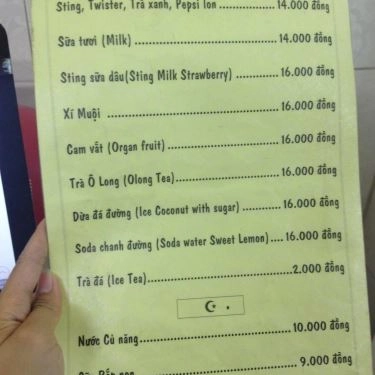 Sting, Twister, Trà xanh, Pepsi lon ............ 14.000 đồng
Sữa tươi (Milk) ................................ 14.000 đồng
Sting sữa dâu(Sting Milk Strawberry) ............ 16.000 đồng
Xí Muội ................................ 16.000 đồng
Cam vắt (Organ fruit) ........................ 16.000 đồng
Trà Ô Long (Olong Tea)........................ 16.000 đồng
Dừa đá đường (Ice Coconut with sugar) ............ 16.000 đồng
Soda chanh đường (Soda water Sweet Lemon) .... 16.000 đồng
Trà đá (Ice Tea)................................2.000 đồng
Nước Củ năng................................ 10.000 đồng
Bắp non ................................ 9.000 đồng